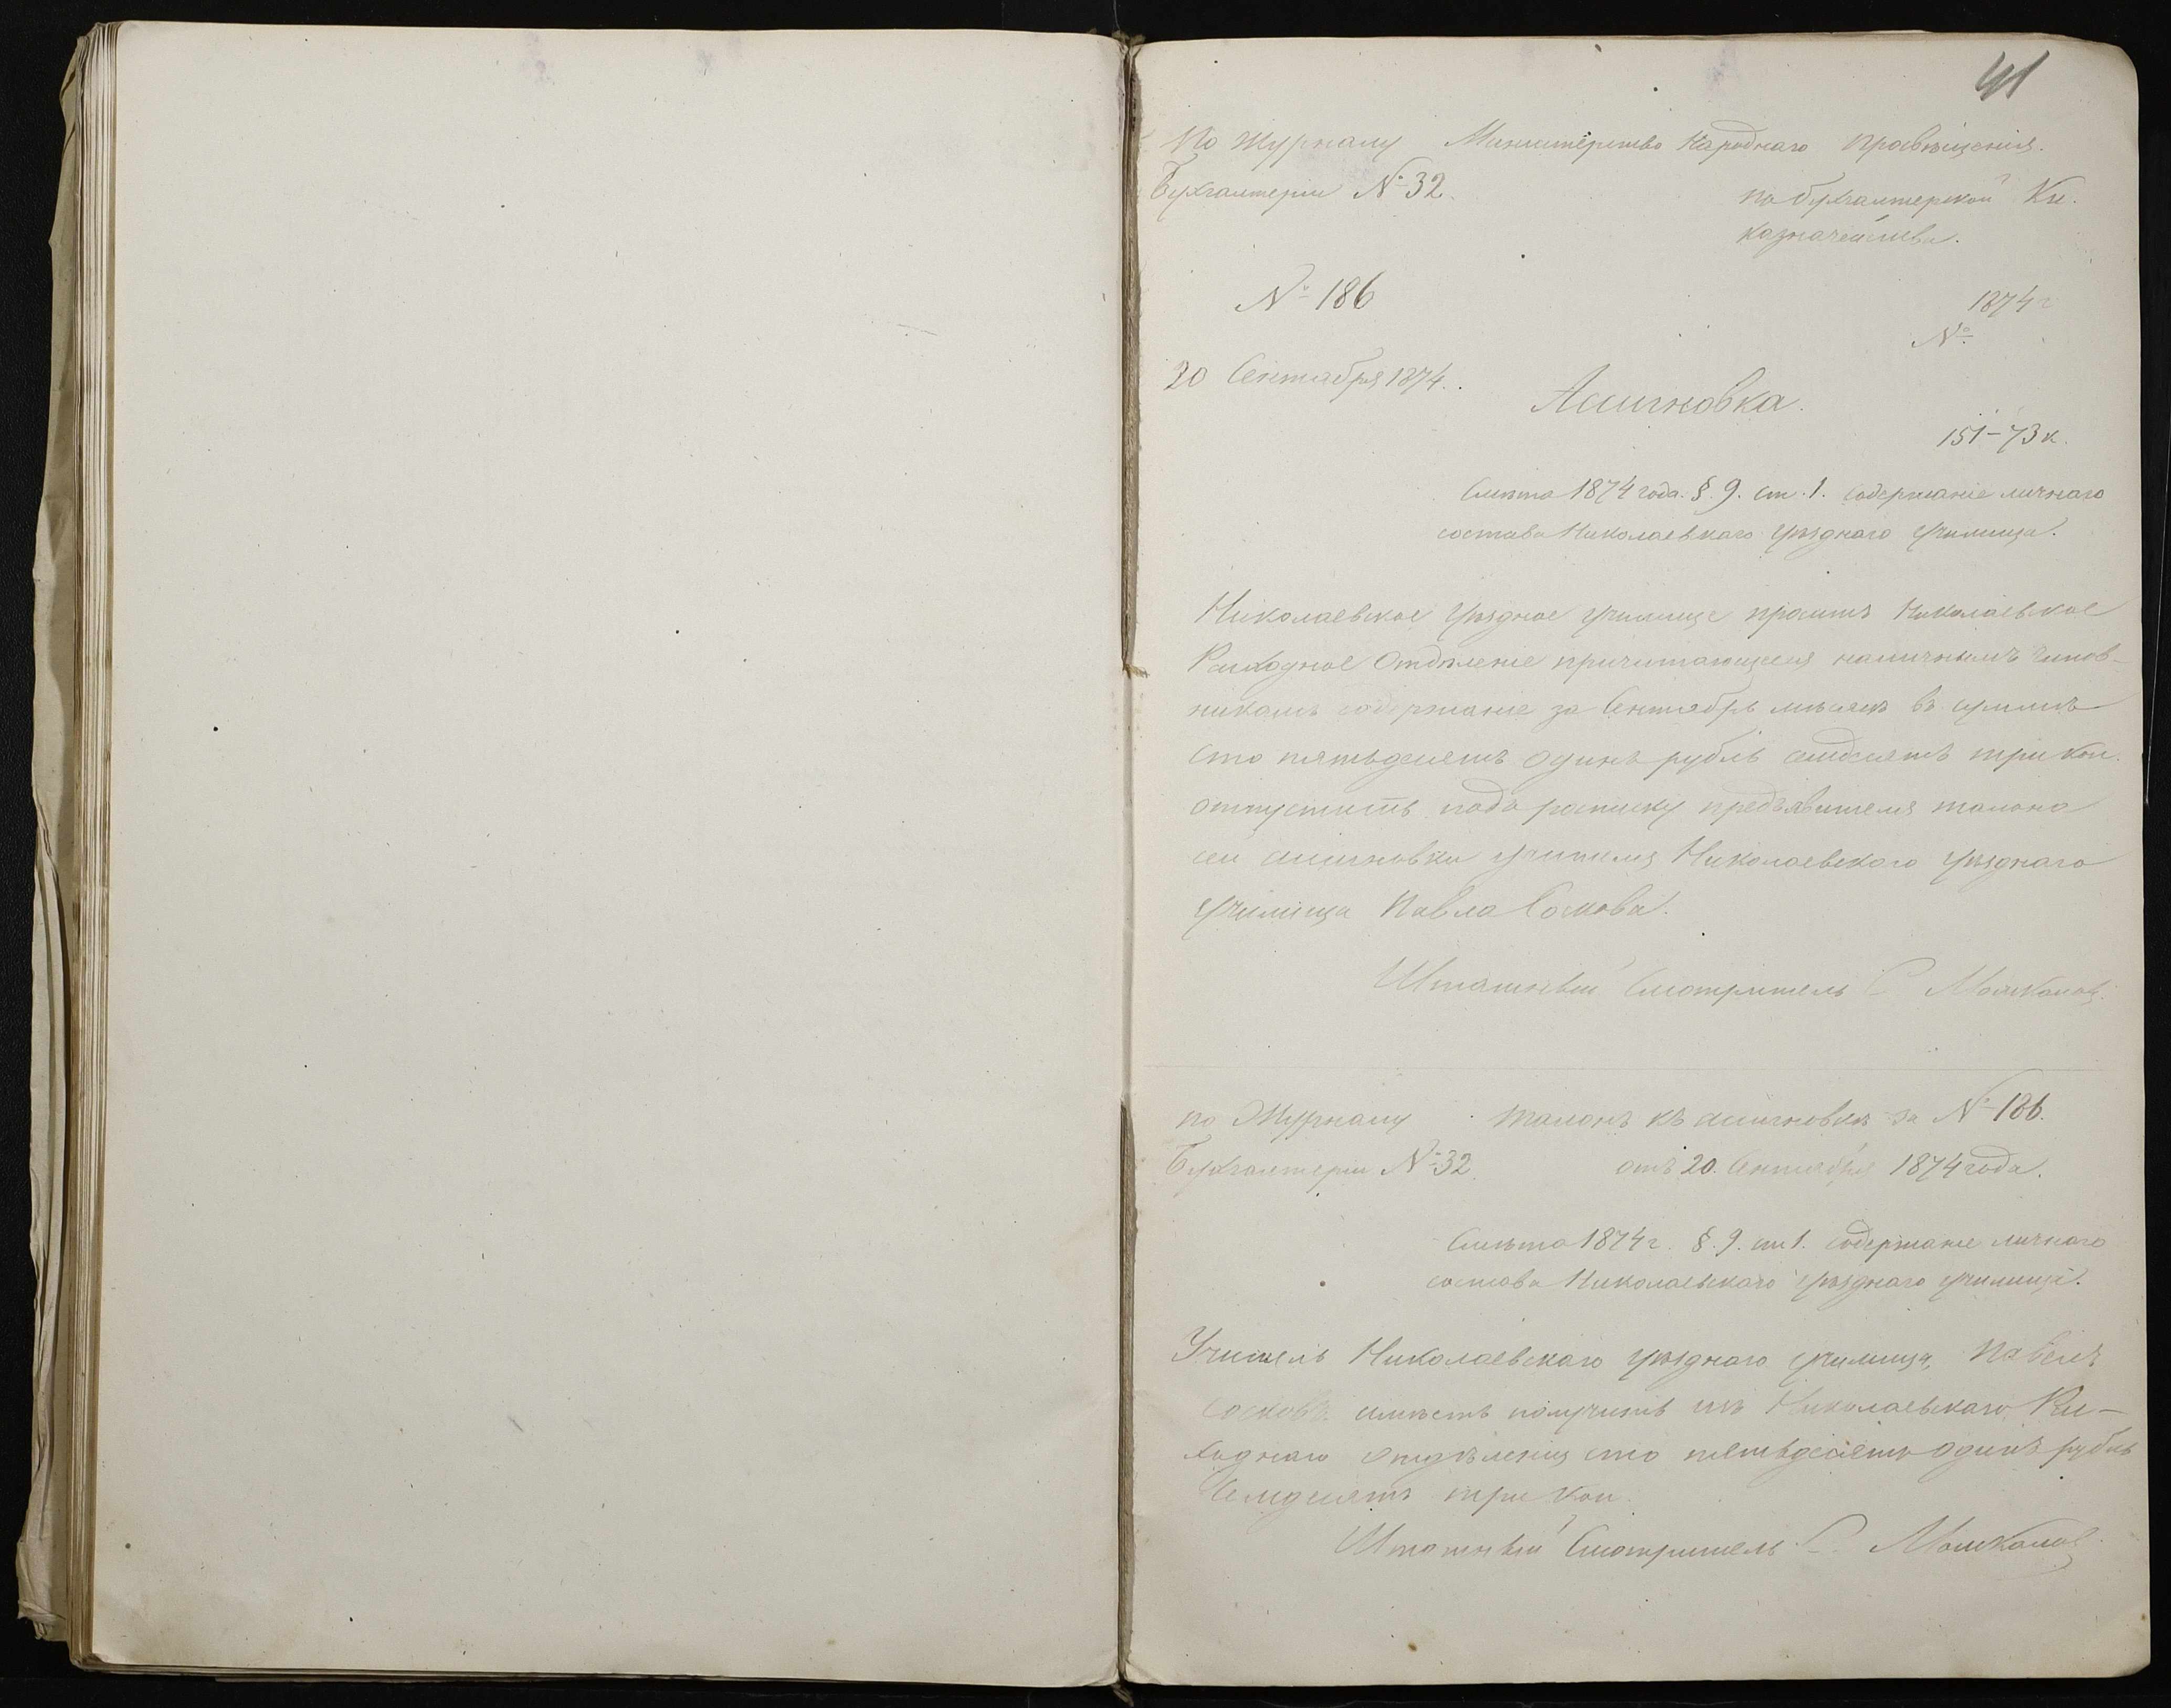 41
По Журналу Министерство Народнаго Просвѣщенія.
Бухгалтеріи № 32.
по бухгалтерской Кн.
казначейства.
№ 186
1874 г
№
20 Сентября 1874.
Асигновка.
151–73 к.
Смѣта 1874 года. §. 9. ст. 1. Содержаніе личнаго
состава Николаевскаго Уѣзднаго Училища.
Николаевское Уѣздное Училище проситъ Николаевское
Расходное Отдѣленіе причитающееся наличнымъ чинов-
никамъ содержаніе за Сентябрь мѣсяцъ въ суммѣ
сто пятьдесятъ одинъ рубль семдесятъ три коп.
отпустить подъ росписку предъявителя талона
сей асигновки учителя Николаевского Уѣзднаго
Училища Павла Соскова.
Штатный Смотритель
по Журналу Талонъ къ асигновкѣ за № 186.
Бухгалтеріи № 32 отъ 20. Сентября 1874 года.
Смѣта 1874 г. §. 9. ст 1. Содержаніе личнаго
состава Николаевскаго Уѣзднаго Училища.
Учитель Николаевскаго Уѣзднаго Училища, Павелъ
Сосковъ имѣетъ получить изъ Николаевскаго Рас-
ходнаго Отдѣленія сто пятьдесятъ одинъ рубль
Семдесятъ три коп.
Штатный Смотритель